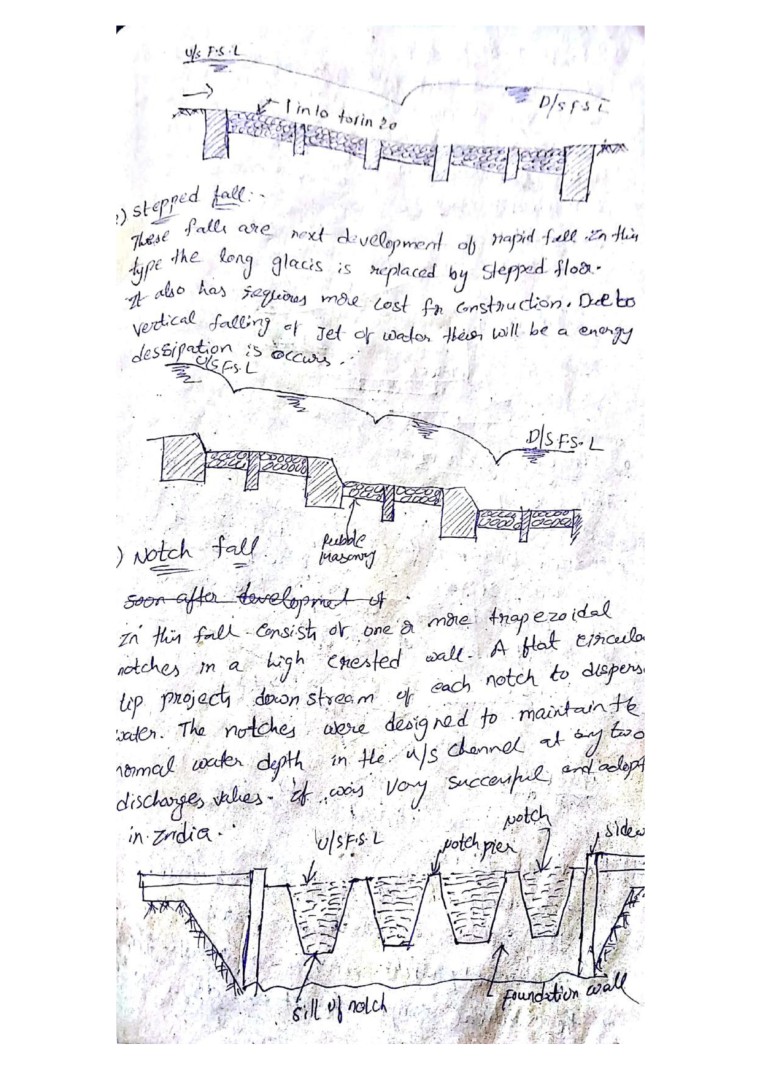 U/s F.S.L
D/s F S L
1 in 10 to 1 in 20
) Stepped fall:-
These falls are next development of rapid fall. In this
type the long glacis is replaced by stepped floor.
It also has requires more cost for construction. Due to
vertical falling of Jet of water their will be a energy
dessipation is occurs.
U/s F.S.L
D/s F.S.L
Rubble
masonry
) Notch fall
soon after development of
In this fall consists of one or more trapezoidal
notches in a high crested wall. A flat circula
lip projects down stream of each notch to dispers
water. The notches were designed to maintain the
normal water depth in the u/s channel at any two
discharges values. It was very successful, and adopt
in India.
U/S F.S.L
notch pier
notch
sidew
sill of notch
Foundation wall